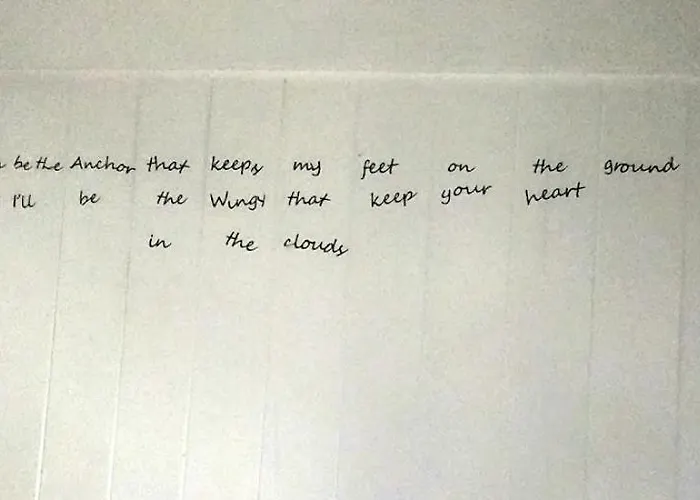 be the Anchor that keeps my feet on the ground
I'll be the Wings that keep your heart
in the clouds